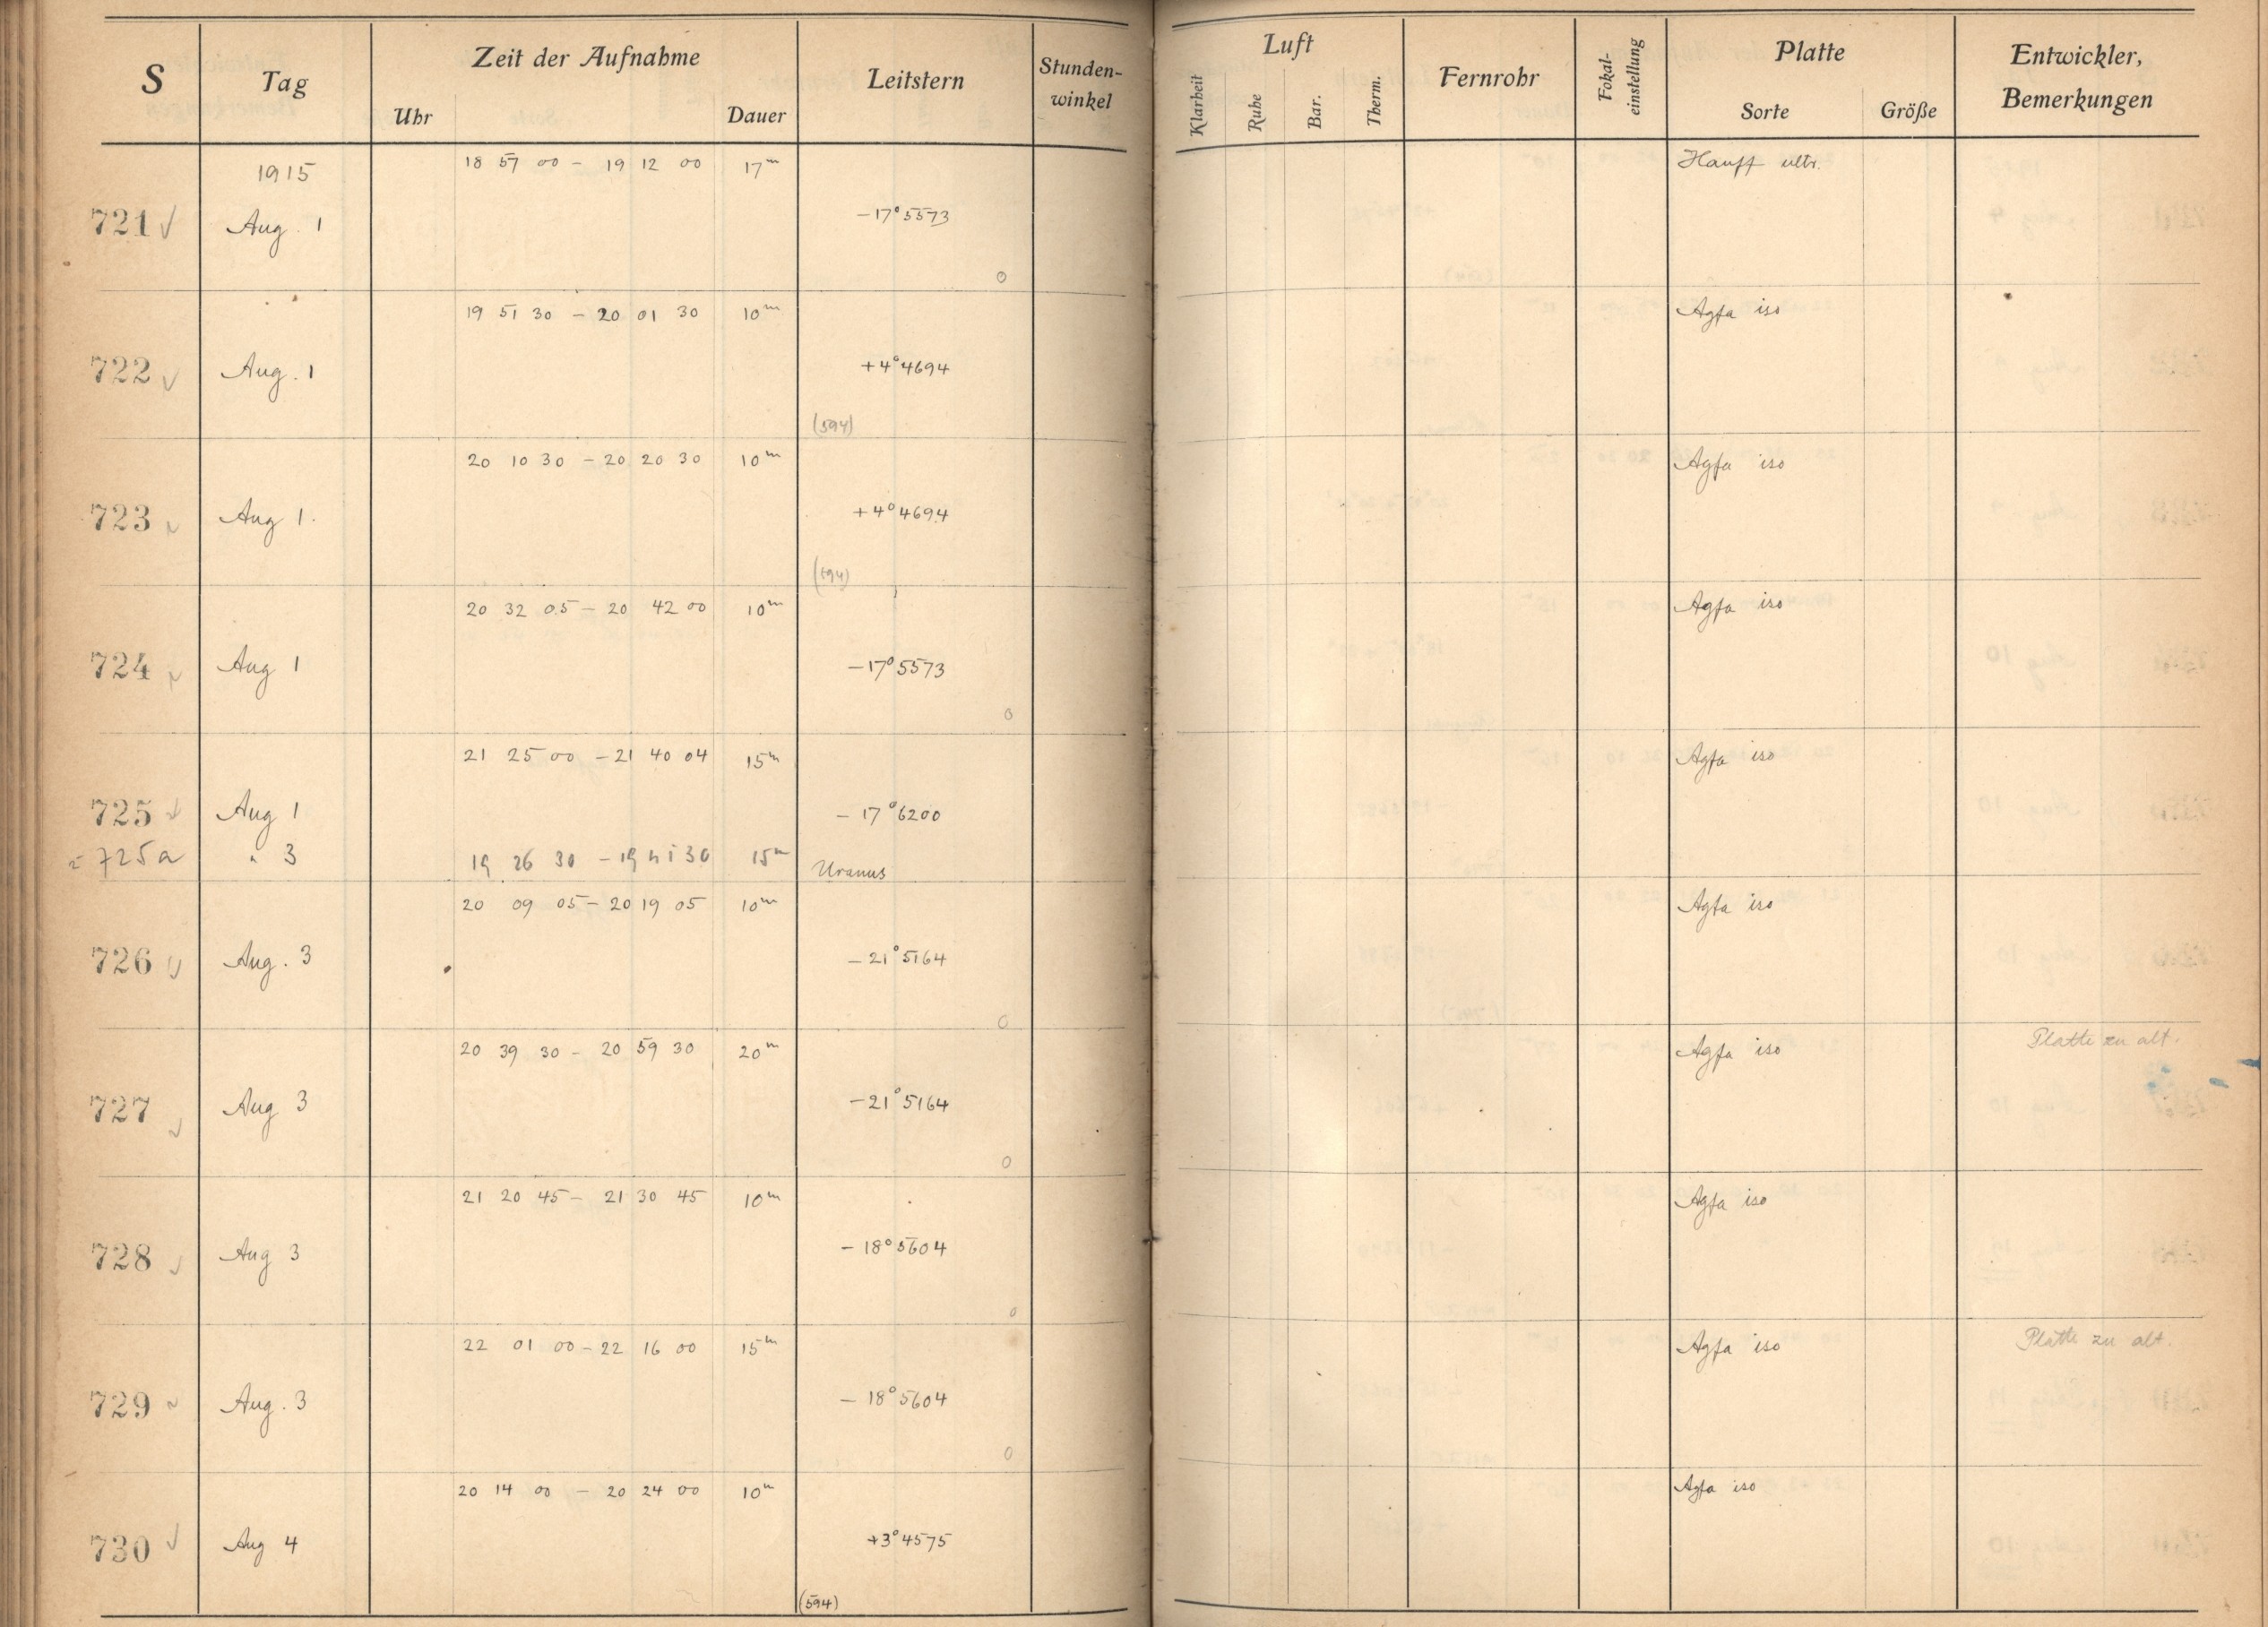 S Tag Zeit der Aufnahme Leitstern Stunden-winkel Luft Fernrohr Fokal-einstellung Platte Entwickler, Bemerkungen
Uhr Dauer Klarheit Ruhe Bar. Therm. Sorte Größe
1915 18 57 00 - 19 12 00 17m Hauff ultr.
721 Aug. 1 -17°5573
0
19 51 30 - 20 01 30 10m Agfa iso
722 Aug. 1 +4°4694
(594)
20 10 30 - 20 20 30 10m Agfa iso
723 Aug 1. +4°4694
(594)
20 32 05 - 20 42 00 10m Agfa iso
724 Aug 1 -17°5573
0
21 25 00 - 21 40 04 15m Agfa iso
725 Aug 1 -17°6200
725a " 3 19 26 30 - 19 41 30 15m Uranus
20 09 05 - 20 19 05 10m Agfa iso
726 Aug. 3 -21°5164
0
20 39 30 - 20 59 30 20m Agfa iso Platte zu alt.
727 Aug 3 -21°5164
0
21 20 45 - 21 30 45 10m Agfa iso
728 Aug 3 -18°5604
0
22 01 00 - 22 16 00 15m Agfa iso Platte zu alt.
729 Aug. 3 -18°5604
0
20 14 00 - 20 24 00 10m Agfa iso
730 Aug 4 +3°4575
(594)